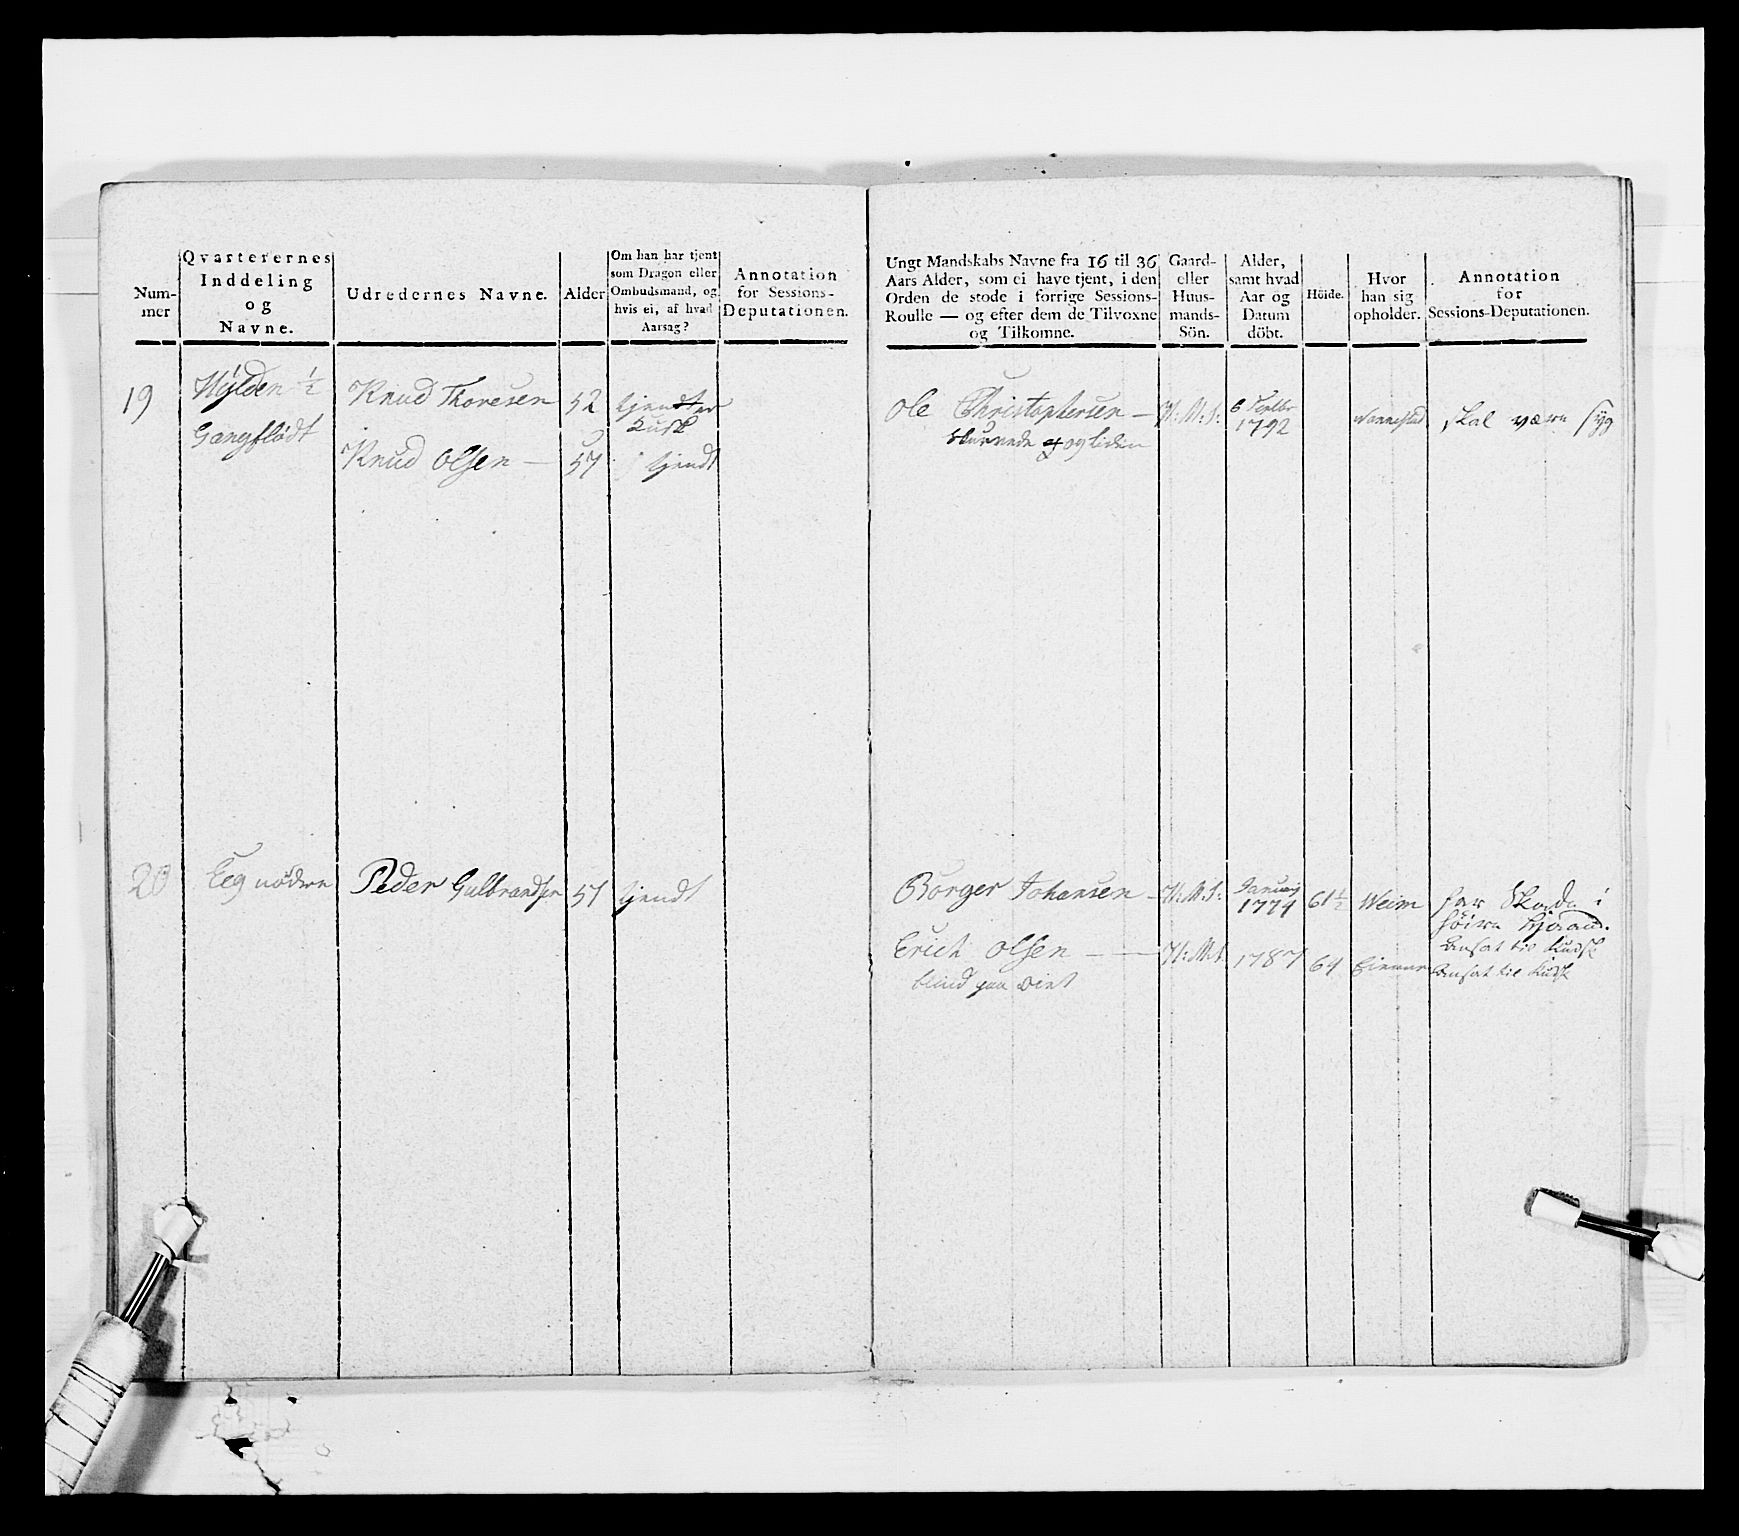 Num-
mer
Qvarterernes
Inddeling
og
Navne.
Udredernes Navne.
Alder
Om han har tjent
som Dragon eller
Ombudsmand, og
hvis ei, af hvad
Aarsag?
Annotation
for Sessions-
Deputationen.
19
Hylden ½
Gangflödt
Knud Thoresen
52
tjendt
Kusk
Knud Olsen —
57
tjendt
20
Eeg nödre
Peder Gulbrandsen
57
tjendt
Ungt Mandskabs Navne fra 16 til 36
Aars Alder, som ei have tjent, i den
Orden de stode i forrige Sessions-
Roulle — og efter dem de Tilvoxne
og Tilkomne.
Gaard-
eller
Huus-
mands-
Sön.
Alder,
samt hvad
Aar og
Datum
döbt.
Höide.
Hvor
han sig
opholder.
Annotation
for
Sessions-Deputationen.
Ole Christophersen —
H: M: S:
6 Septbr
1792
Nannestad
skal være syg
og liden
Börger Johansen —
H: M: S:
Januarj
1774
61½
Weim
har Skade i
höire
Ansat til Kudsk
Erich Olsen — —
H: M: S.
1787
64
Ansat til Kudsk
blind paa